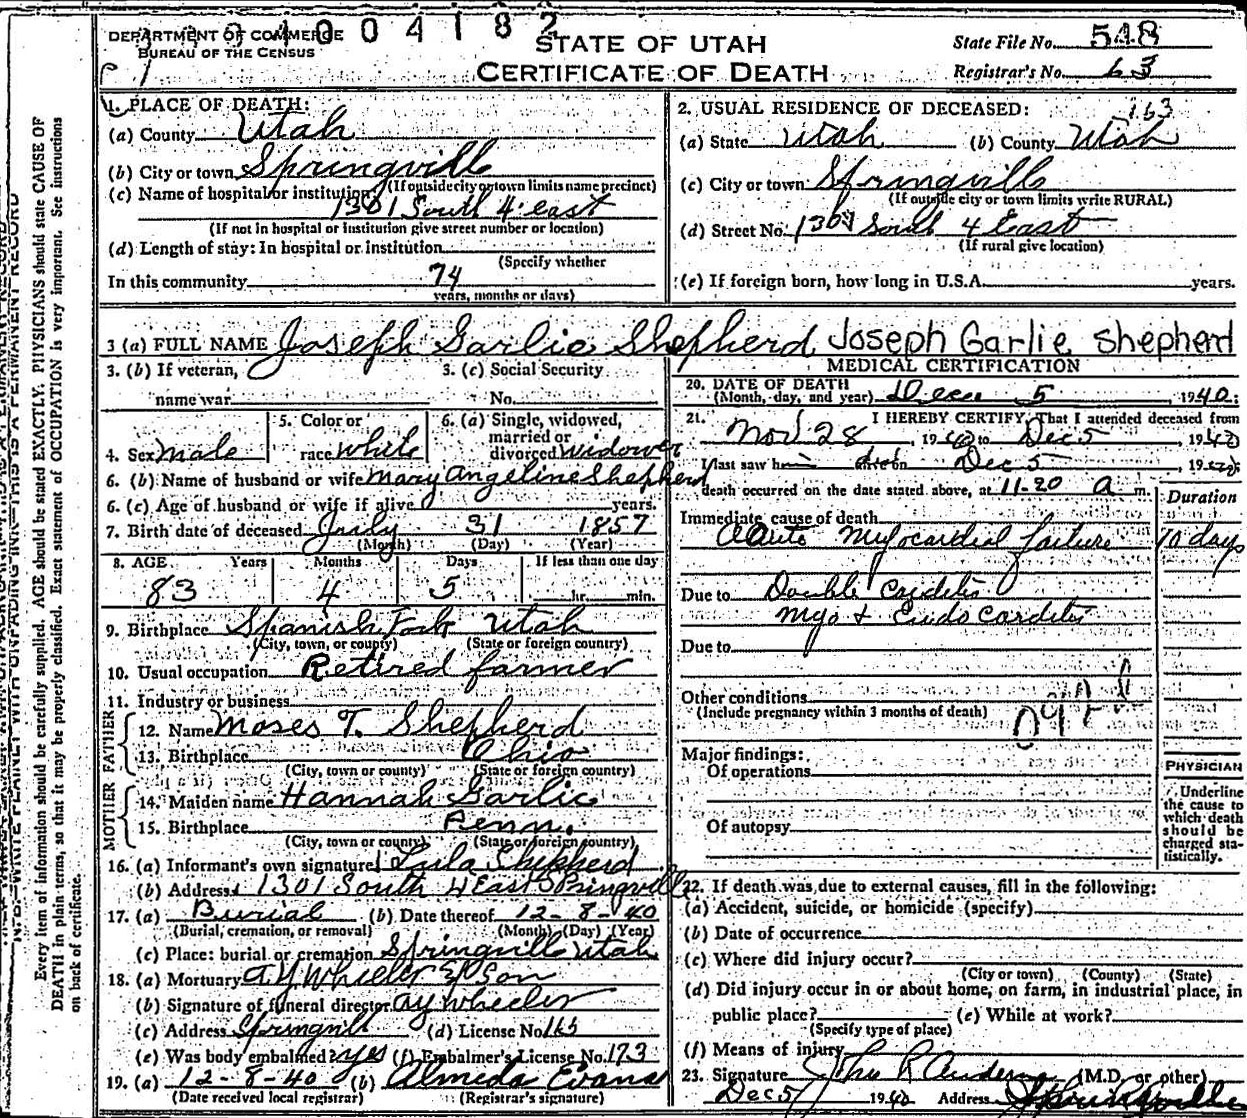 DEPARTMENT OF COMMERCE
BUREAU OF THE CENSUS
004182
STATE OF UTAH
CERTIFICATE OF DEATH
State File No. 548
Registrar's No. 63
1. PLACE OF DEATH:
(a) County Utah
(b) City or town Springville
(If outside city or town limits name precinct)
(c) Name of hospital or institution:
1301 South 4 east
(If not in hospital or institution give street number or location)
(d) Length of stay: In hospital or institution
(Specify whether
In this community 74
years, months or days)
2. USUAL RESIDENCE OF DECEASED: 163
(a) State Utah (b) County Utah
(c) City or town Springville
(If outside city or town limits write RURAL)
(d) Street No. 1301 South 4 East
(If rural give location)
(e) If foreign born, how long in U.S.A. years.
3 (a) FULL NAME Joseph Garlie Shepherd Joseph Garlie Shepherd
3. (b) If veteran,
name war
3. (c) Social Security
No.
4. Sex male
5. Color or
race white
6. (a) Single, widowed,
married or
divorced widower
6. (b) Name of husband or wife Mary Angeline Shepherd
6. (c) Age of husband or wife if alive years.
7. Birth date of deceased July 31 1857
(Month) (Day) (Year)
8. AGE Years Months Days If less than one day
83 4 5 hr. min.
9. Birthplace Spanish Fork Utah
(City, town, or county) (State or foreign country)
10. Usual occupation Retired farmer
11. Industry or business
FATHER
12. Name Moses T. Shepherd
13. Birthplace Ohio
(City, town or county) (State or foreign country)
MOTHER
14. Maiden name Hannah Garlic
15. Birthplace Penn.
(City, town or county) (State or foreign country)
16. (a) Informant's own signature Lula Shepherd
(b) Address 1301 South 4 East Springville
17. (a) Burial (b) Date thereof 12-8-40
(Burial, cremation, or removal) (Month) (Day) (Year)
(c) Place: burial or cremation Springville Utah
18. (a) Mortuary A Y Wheeler & Son
(b) Signature of funeral director A y Wheeler
(c) Address Springvill (d) License No. 165
(e) Was body embalmed? yes (f) Embalmer's License No. 173
19. (a) 12-8-40 (b) Almeda Evans
(Date received local registrar) (Registrar's signature)
MEDICAL CERTIFICATION
20. DATE OF DEATH
(Month, day, and year) Dec 5 1940:
21. I HEREBY CERTIFY, That I attended deceased from
Nov 28, 1940 to Dec 5, 1940
I last saw him on Dec 5, 1940;
death occurred on the date stated above, at 11-20 a m.
Duration
Immediate cause of death
Acute Myocardial failure 10 days
Due to Double Carditis
Myo + Endo Carditis
Due to
Other conditions
(Include pregnancy within 3 months of death)
Major findings:
Of operations
Of autopsy
PHYSICIAN
Underline
the cause to
which death
should be
charged sta-
tistically.
22. If death was due to external causes, fill in the following:
(a) Accident, suicide, or homicide (specify)
(b) Date of occurrence
(c) Where did injury occur?
(City or town) (County) (State)
(d) Did injury occur in or about home, on farm, in industrial place, in
public place? (e) While at work?
(Specify type of place)
(f) Means of injury
23. Signature (M.D. or other)
Dec 5 1940 Address Springville
Every item of information should be carefully supplied. AGE should be stated EXACTLY. PHYSICIANS should state CAUSE OF
DEATH in plain terms, so that it may be properly classified. Exact statement of OCCUPATION is very important. See instructions
on back of certificate.